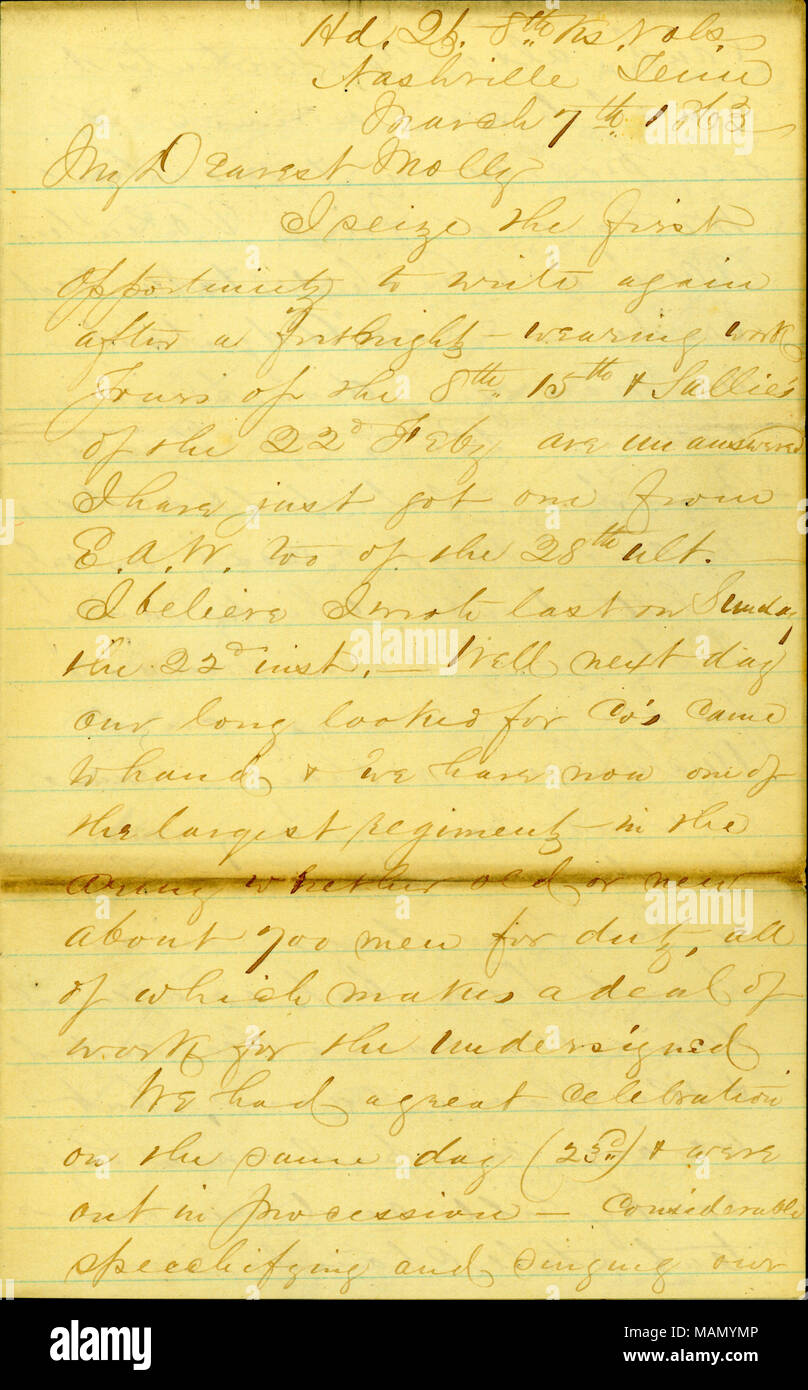 Hd. Qt. 8th Ks. Vols.
Nashville Tenn
March 7th 1863
My Dearest Molly
I seize the first
opportunity to write again
after a fortnight wearing work
Yours of the 8th, 15th & Sallie's
of the 22d Feby are unanswered
I have just got one from
E. A. W. too of the 28th ult.
I believe I wrote last on Sunday
the 22d inst. — Well next day
our long looked for Co's came
to hand & we have now one of
the largest regiments in the
army whether old or new
about 700 men for duty, all
of which makes a deal of
work for the undersigned
We had a great celebration
on the same day (23rd) & were
out in procession — Considerable
speechifying and singing our
alamy
Image ID: MAMYMP
www.alamy.com